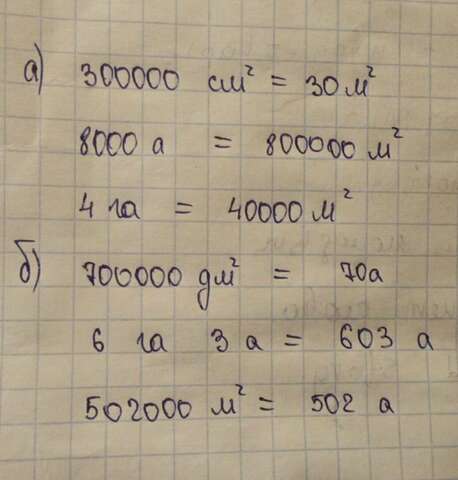 а) 300000 см² = 30 м²
8000 а = 800000 м²
4 га = 40000 м²
б) 700000 дм² = 70а
6 га 3 а = 603 а
502000 м² = 502 а